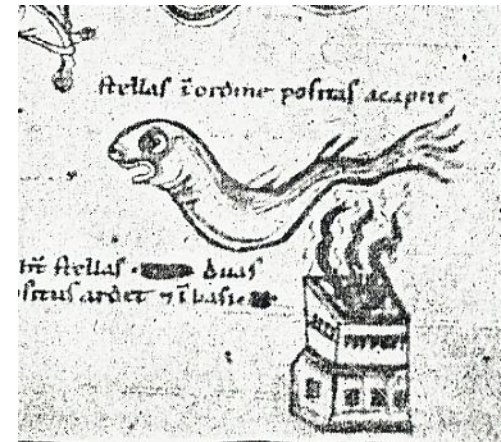 stellas ī ordine positas a capite
stellas duas
situs ardet ⁊ ī basi